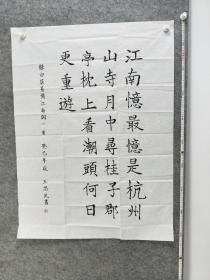 江南憶最憶是杭州
山寺月中尋桂子郡
亭枕上看潮頭何日
更重遊
錄白居易憶江南詞一首 癸巳年秋 王